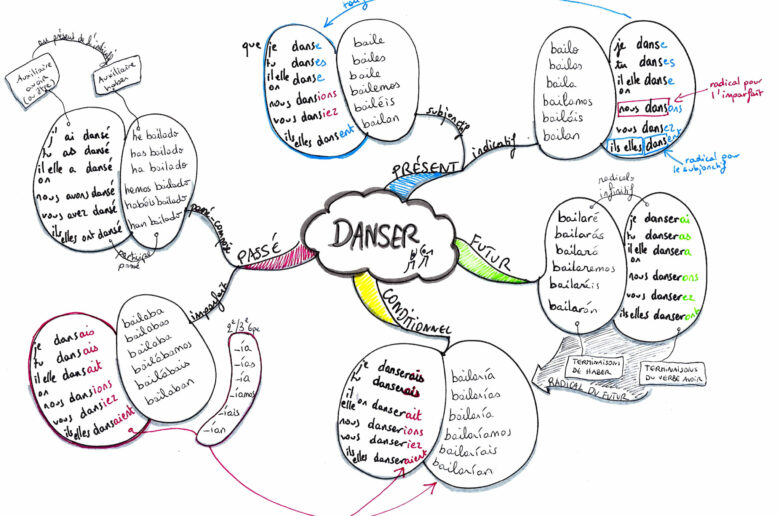 DANSER
PRÉSENT
subjonctif
que je danse
tu danses
il elle danse
on
nous dansions
vous dansiez
ils elles dansent
baile
bailes
baile
bailemos
bailéis
bailen
indicatif
bailo
bailas
baila
bailamos
bailáis
bailan
je danse
tu danses
il elle danse
on
nous dansons
vous dansez
ils elles dansent
radical pour
l'imparfait
radical pour
le subjonctif
FUTUR
radical =
infinitif
bailaré
bailarás
bailará
bailaremos
bailaréis
bailarán
je danserai
tu danseras
il elle dansera
on
nous danserons
vous danserez
ils elles danseront
TERMINAISONS
DE HABER
TERMINAISONS
DU VERBE AVOIR
RADICAL DU FUTUR
CONDITIONNEL
je danserais
tu danserais
il
elle danserait
on
nous danserions
vous danseriez
ils
elles danseraient
bailaría
bailarías
bailaría
bailaríamos
bailaríais
bailarían
PASSÉ
passé-composé
au présent de l'indicatif
Auxiliaire
avoir
(ou être)
Auxiliaire
haber
j' ai dansé
tu as dansé
il elle a dansé
on
nous avons dansé
vous avez dansé
ils
elles ont dansé
he bailado
has bailado
ha bailado
hemos bailado
habéis bailado
han bailado
participe
passé
imparfait
je dansais
tu dansais
il elle dansait
on
nous dansions
vous dansiez
ils elles dansaient
bailaba
bailabas
bailaba
bailábamos
bailabais
bailaban
2e/3e gpe
-ía
-ías
-ía
-íamos
-íais
-ían